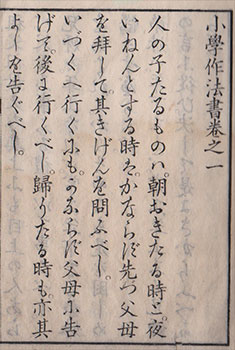 小學作法書巻之一
人の子たるものハ、朝おきたる時と、夜
いねんとする時は、かならず先づ父母
を拜して、其きげんを問ふべし。
いづくへ行くにも、かならず父母に告
げて、後に行くべし。歸りたる時も、亦其
よしを告ぐべし。